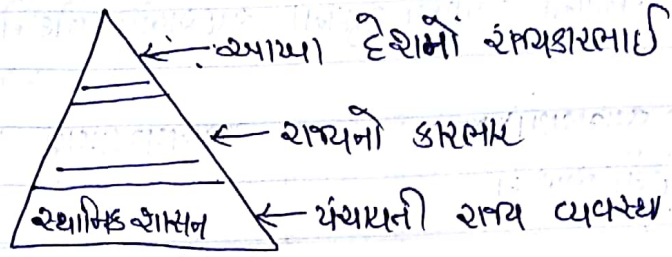 આખા દેશમોં રાજ્યકારભાઈ
રાજ્યનો કારભાર
સ્થાનિક શાસન
પંચાયતી રાજ્ય વ્યવસ્થા